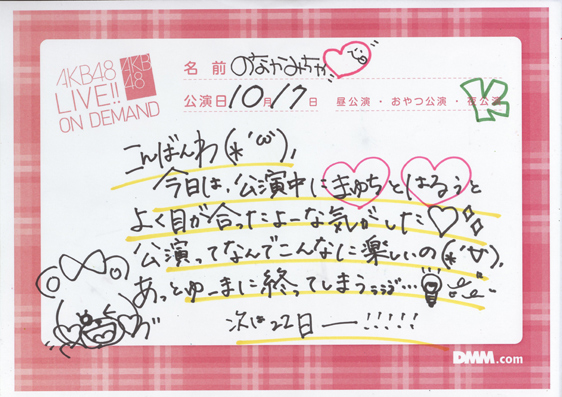 AKB48
LIVE!!
ON DEMAND
AKB
48
名前 のなかみちゃん
公演日 10月17日 昼公演・おやつ公演・夜公演
こんばんわ(*´ω`)、
今日は、公演中にまゆちとはるぅと
よく目が合ったよーな気がした♡
公演ってなんでこんなに楽しいの(*´∀`)、
あっとゆーまに終ってしまう…
次は22日ー!!!!!
DMM.com